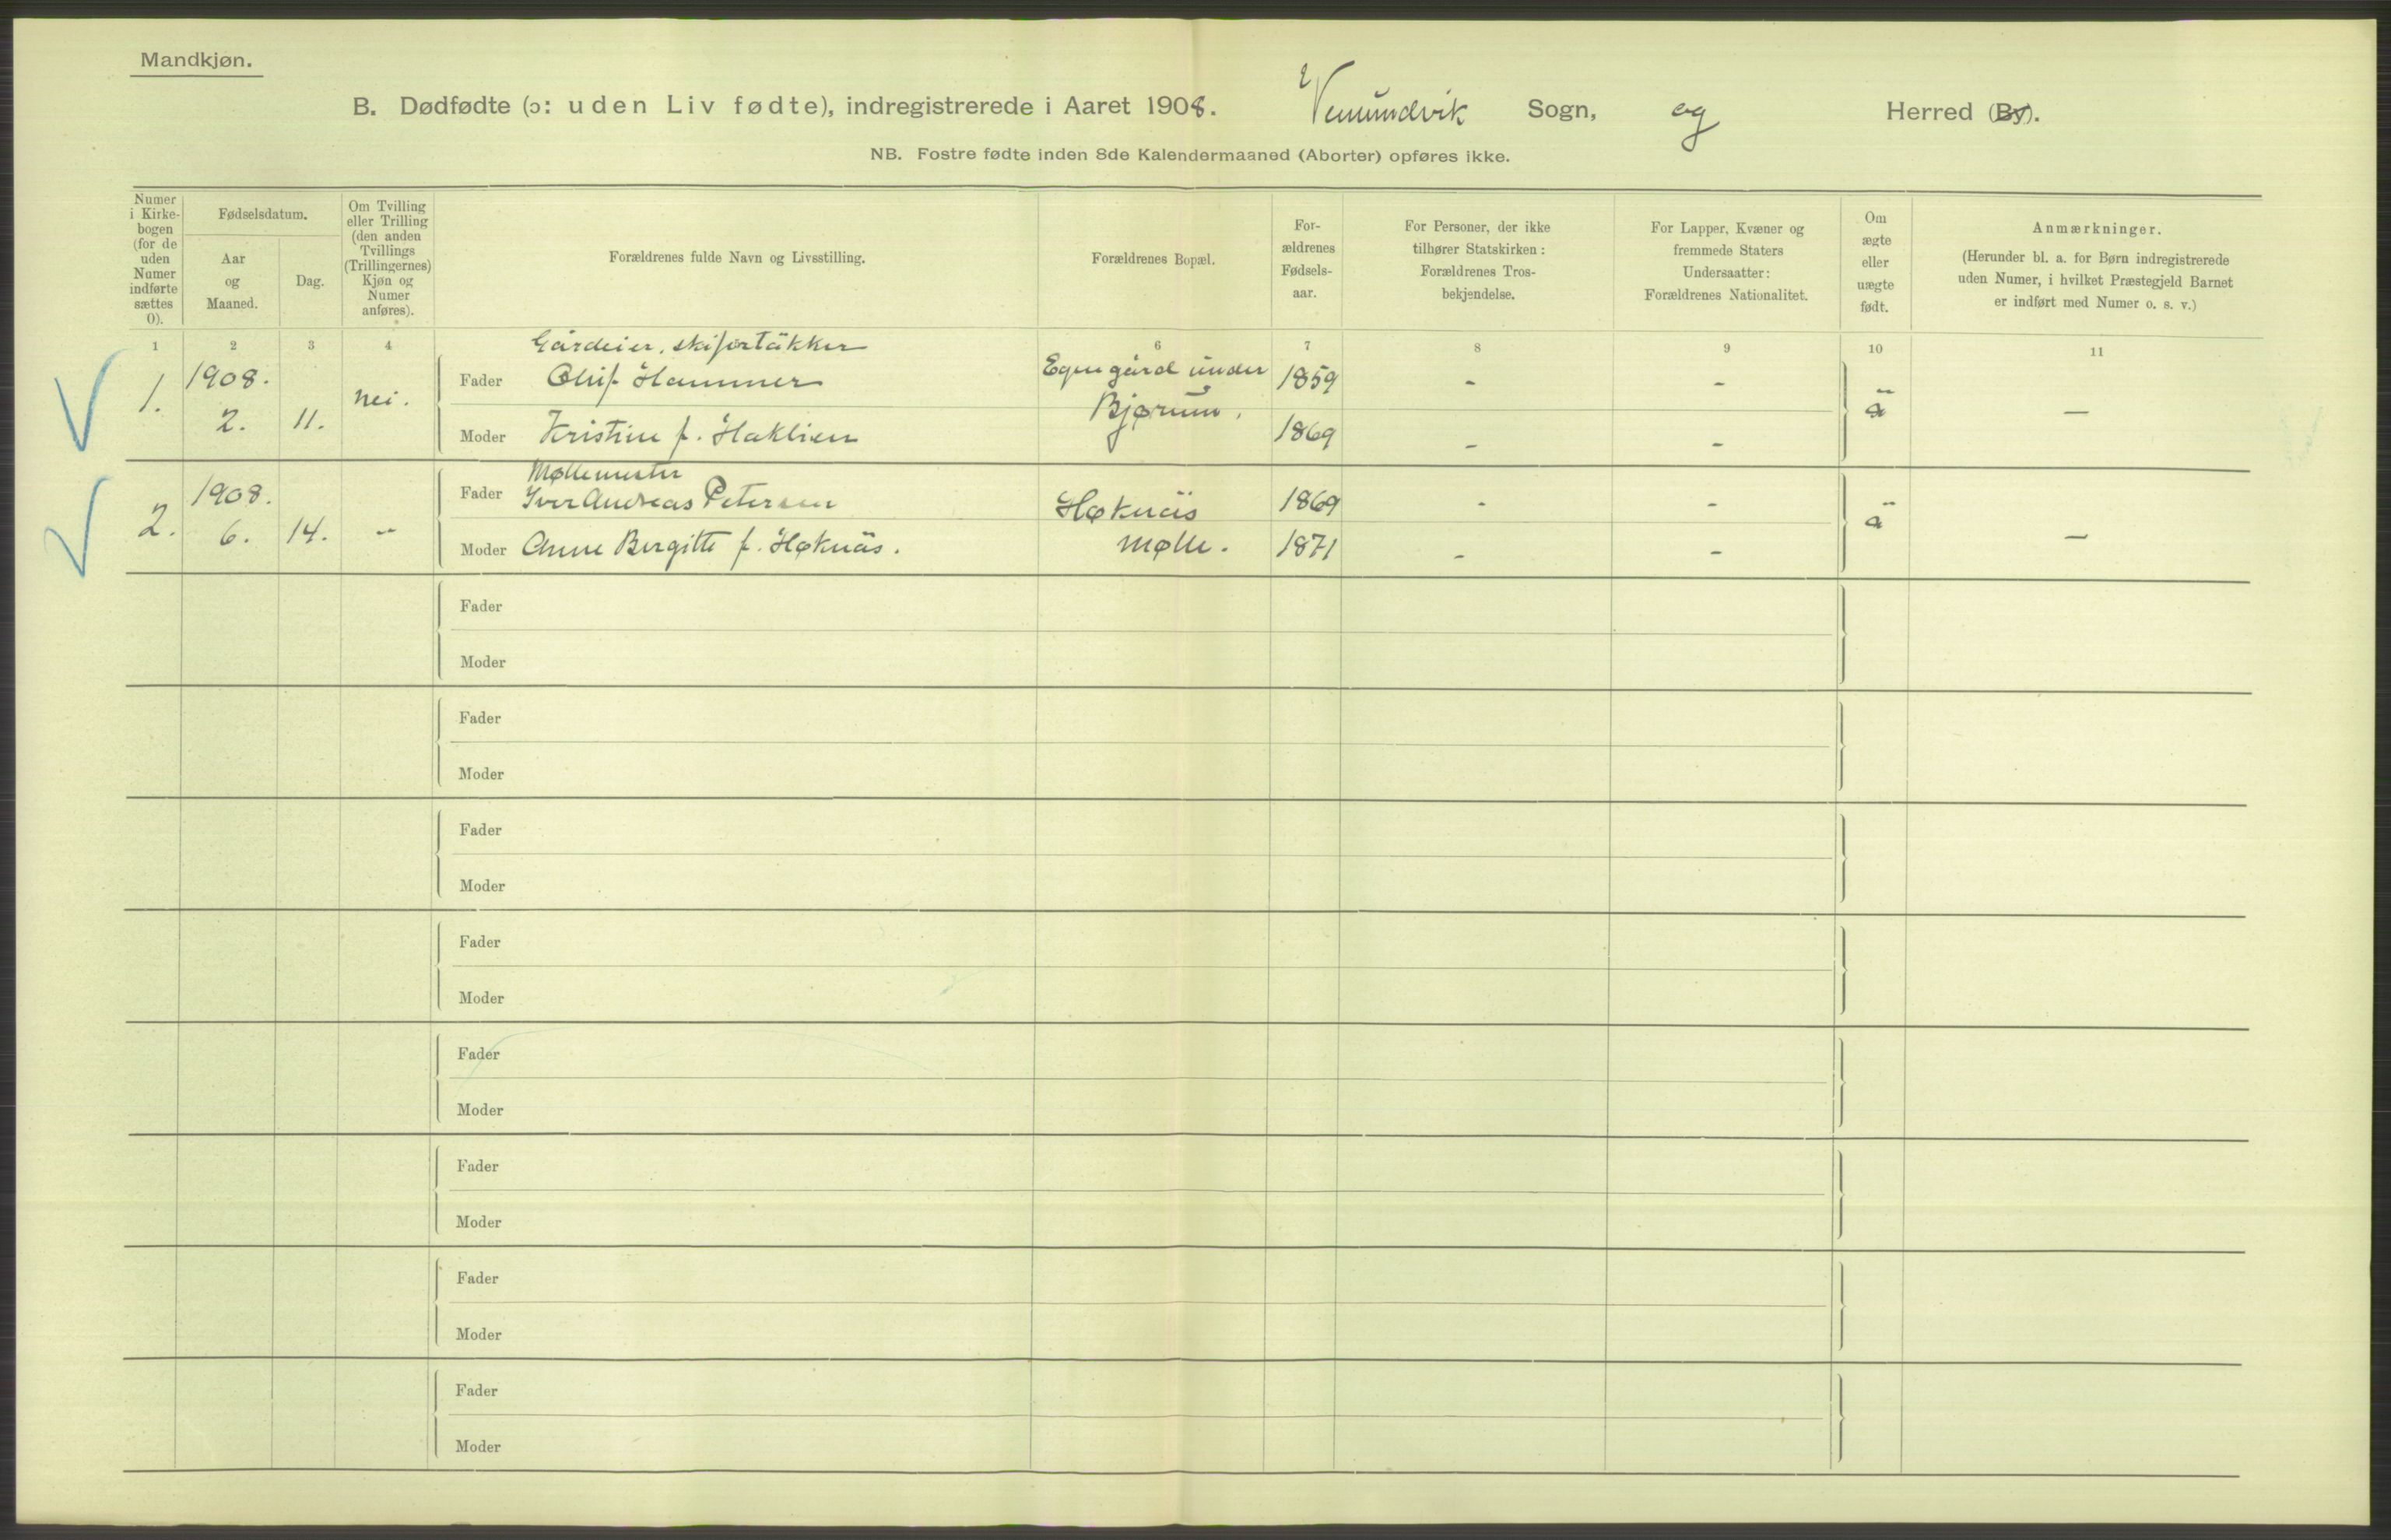 Mandkjøn.
B. Dødfødte (ɔ: uden Liv fødte), indregistrerede i Aaret 1908. Vemundvik Sogn, og Herred (By).
NB. Fostre fødte inden 8de Kalendermaaned (Aborter) opføres ikke.
Numer i Kirke-bogen (for de uden Numer indførte sættes 0).
Fødselsdatum.
Aar og Maaned.
Dag.
Om Tvilling eller Trilling (den anden Tvillings (Trillingernes) Kjøn og Numer anføres).
Forældrenes fulde Navn og Livsstilling.
Forældrenes Bopæl.
For-ældrenes Fødsels-aar.
For Personer, der ikke tilhører Statskirken: Forældrenes Tros-bekjendelse.
For Lapper, Kvæner og fremmede Staters Undersaatter: Forældrenes Nationalitet.
Om ægte eller uægte født.
Anmærkninger.
(Herunder bl. a. for Børn indregistrerede uden Numer, i hvilket Præstegjeld Barnet er indført med Numer o. s. v.)
1 2 3 4 6 7 8 9 10 11
Gårdeier, skifertäkker
1. 1908. 2. 11. nei.
Fader Oluf Hammer Egen gård under Bjørum. 1859 - - ä —
Moder Kristine f. Haklien 1869 - -
Møllemester
2. 1908. 6. 14. -
Fader Iver Andreas Petersen Høknäs Mølle. 1869 - - ä —
Moder Anne Bergitte f. Høknäs. 1871 - -
Fader
Moder
Fader
Moder
Fader
Moder
Fader
Moder
Fader
Moder
Fader
Moder
Fader
Moder
Fader
Moder